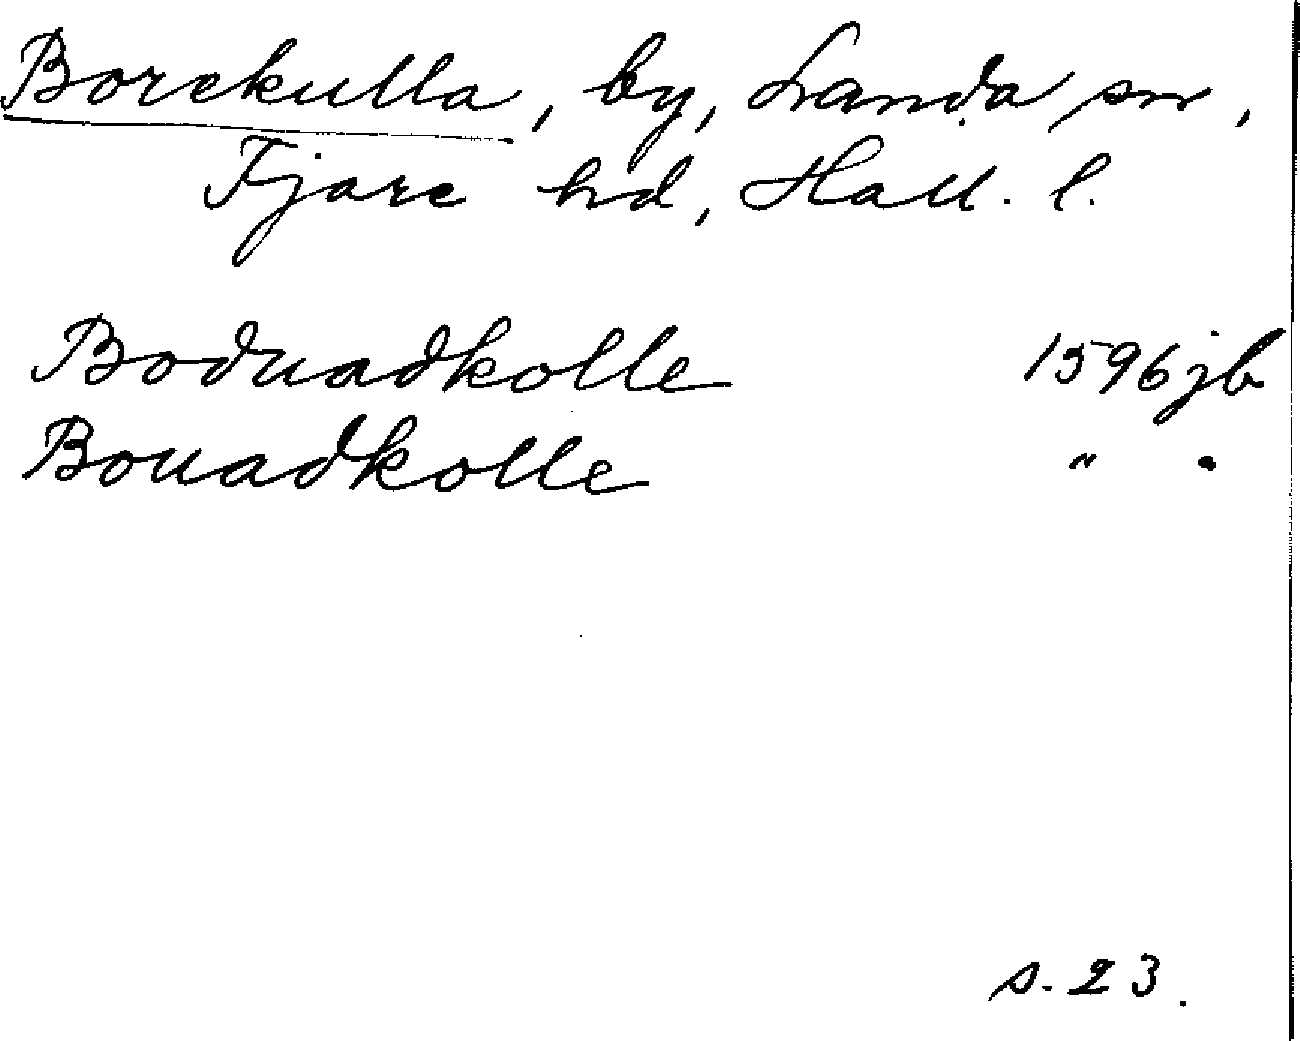 Borekulla, by, Landa sn,
Fjäre hd, Hall. l.
Boduadkolle 1596 jb
Bouadkolle " "
s. 23.